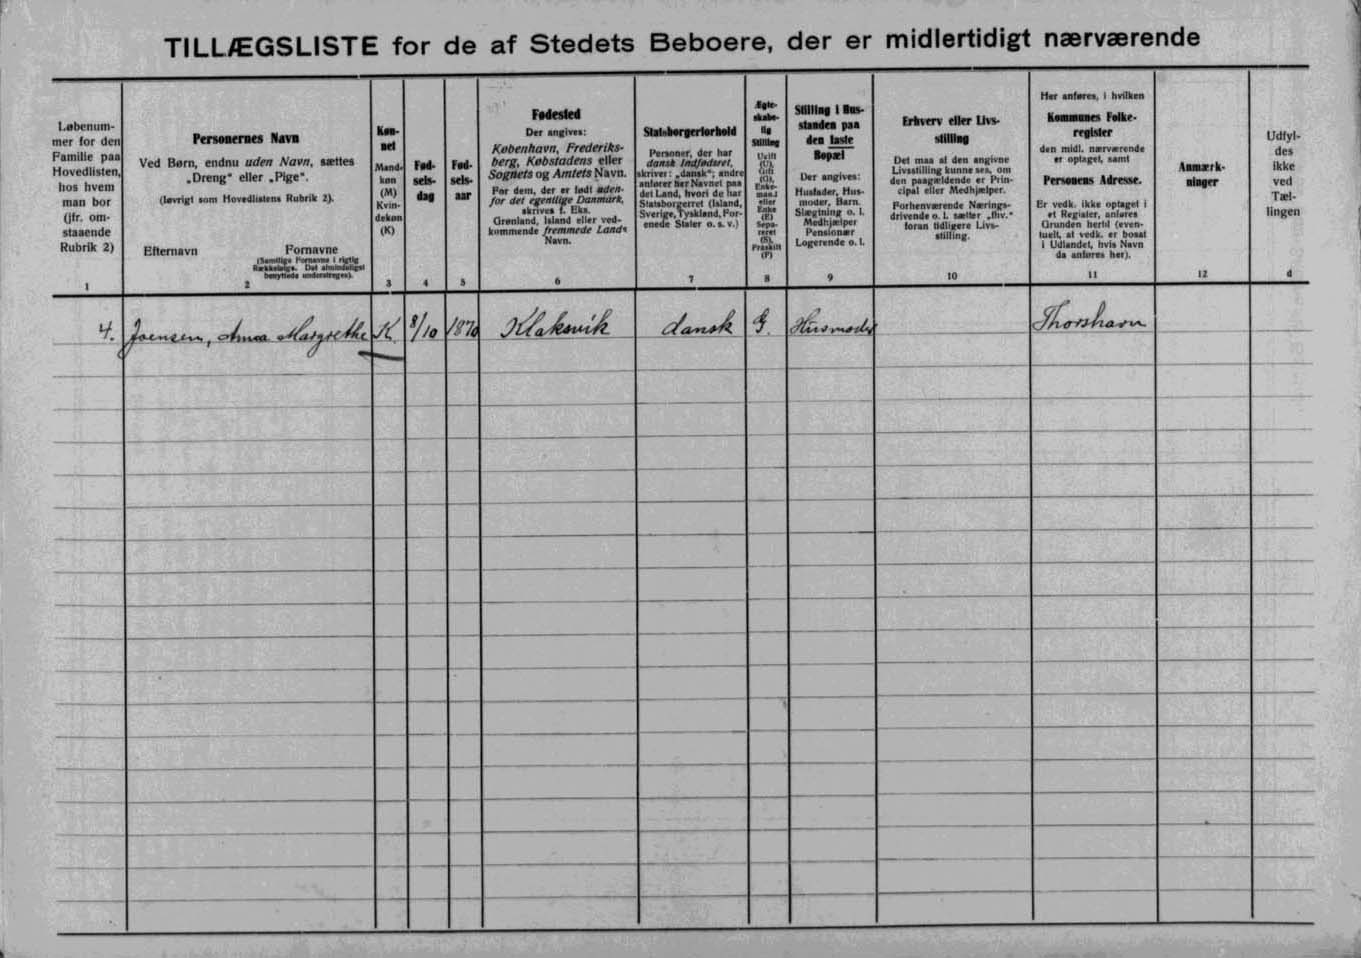 TILLÆGSLISTE for de af Stedets Beboere, der er midlertidigt nærværende
Løbenum-
mer for den
Familie paa
Hovedlisten,
hos hvem
man bor
(jfr. om-
staaende
Rubrik 2)
1
Personernes Navn
Ved Børn, endnu uden Navn, sættes
„Dreng“ eller „Pige“.
(Iøvrigt som Hovedlistens Rubrik 2).
Efternavn Fornavne
(Samtlige Fornavne i rigtig
Rækkefølge. Det almindeligst
benyttede understreges).
2
Køn-
net
Mand-
køn
(M)
Kvin-
dekøn
(K)
3
Fød-
sels-
dag
4
Fød-
sels-
aar
5
Fødested
Der angives:
København, Frederiks-
berg, Købstadens eller
Sognets og Amtets Navn.
For dem, der er født uden-
for det egentlige Danmark,
skrives f. Eks.
Grønland, Island eller ved-
kommende fremmede Lands
Navn.
6
Statsborgerforhold
Personer, der har
dansk Indfødsret,
skriver: „dansk“; andre
anfører her Navnet paa
det Land, hvori de har
Statsborgerret (Island,
Sverige, Tyskland, For-
enede Stater o. s. v.)
7
Ægte-
skabe-
lig
Stilling
Ugift
(U),
Gift
(G),
Enke-
mand
eller
Enke
(E)
Sepa-
reret
(S),
Fraskilt
(F)
8
Stilling i Hus-
standen paa
den faste
Bopæl
Der angives:
Husfader, Hus-
moder, Barn.
Slægtning o. l.
Medhjælper
Pensionær
Logerende o. l.
9
Erhverv eller Livs-
stilling
Det maa af den angivne
Livsstilling kunne ses, om
den paagældende er Prin-
cipal eller Medhjælper.
Forhenværende Nærings-
drivende o. l. sætter „fhv.“
foran tidligere Livs-
stilling.
10
Her anføres, i hvilken
Kommunes Folke-
register
den midl. nærværende
er optaget, samt
Personens Adresse.
Er vedk. ikke optaget i
et Register, anføres
Grunden hertil (even-
tuelt, at vedk. er bosat
i Udlandet, hvis Navn
da anføres her).
11
Anmærk-
ninger
12
Udfyl-
des
ikke
ved
Tæl-
lingen
d
4. Joensen, Anna Margrethe K. 8/10 1870 Klaksvik dansk G. Husmoder Thorshavn